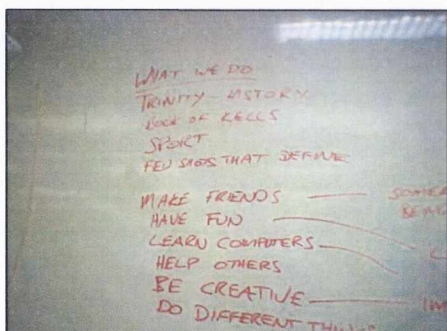 WHAT WE DO
TRINITY - HISTORY
BOOK OF KELLS
SPORT
FEW THAT DEFINE
MAKE FRIENDS
HAVE FUN
LEARN COMPUTERS
HELP OTHERS
BE CREATIVE
DO DIFFERENT